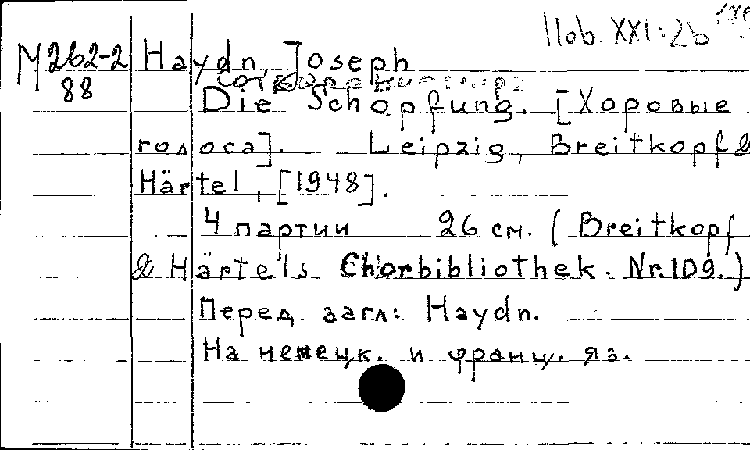 Пов. XXI:26
М 262-2 Haydn, Joseph
88 Die Schöpfung. [Хоровые
голоса]. Leipzig, Breitkopf &
Härtel, [1948].
4 партии 26 см. (Breitkopf
& Härtel's Chorbibliothek. Nr.109.)
Перед загл: Haydn.
На немецк. и франц. яз.